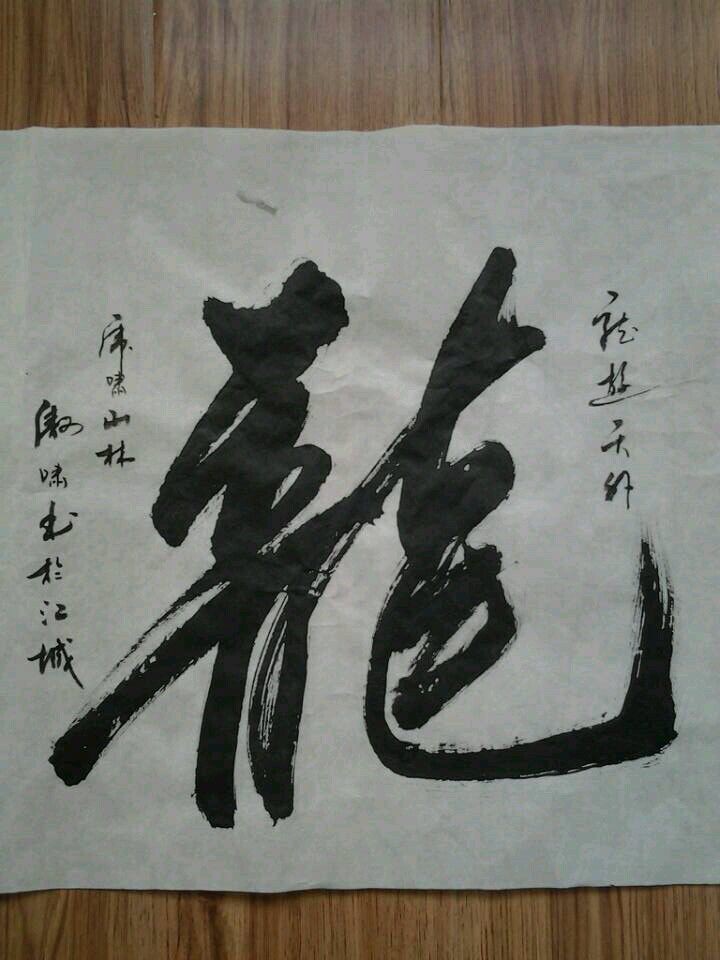 龍遊天外
龍
虎啸山林
傲啸书於江城